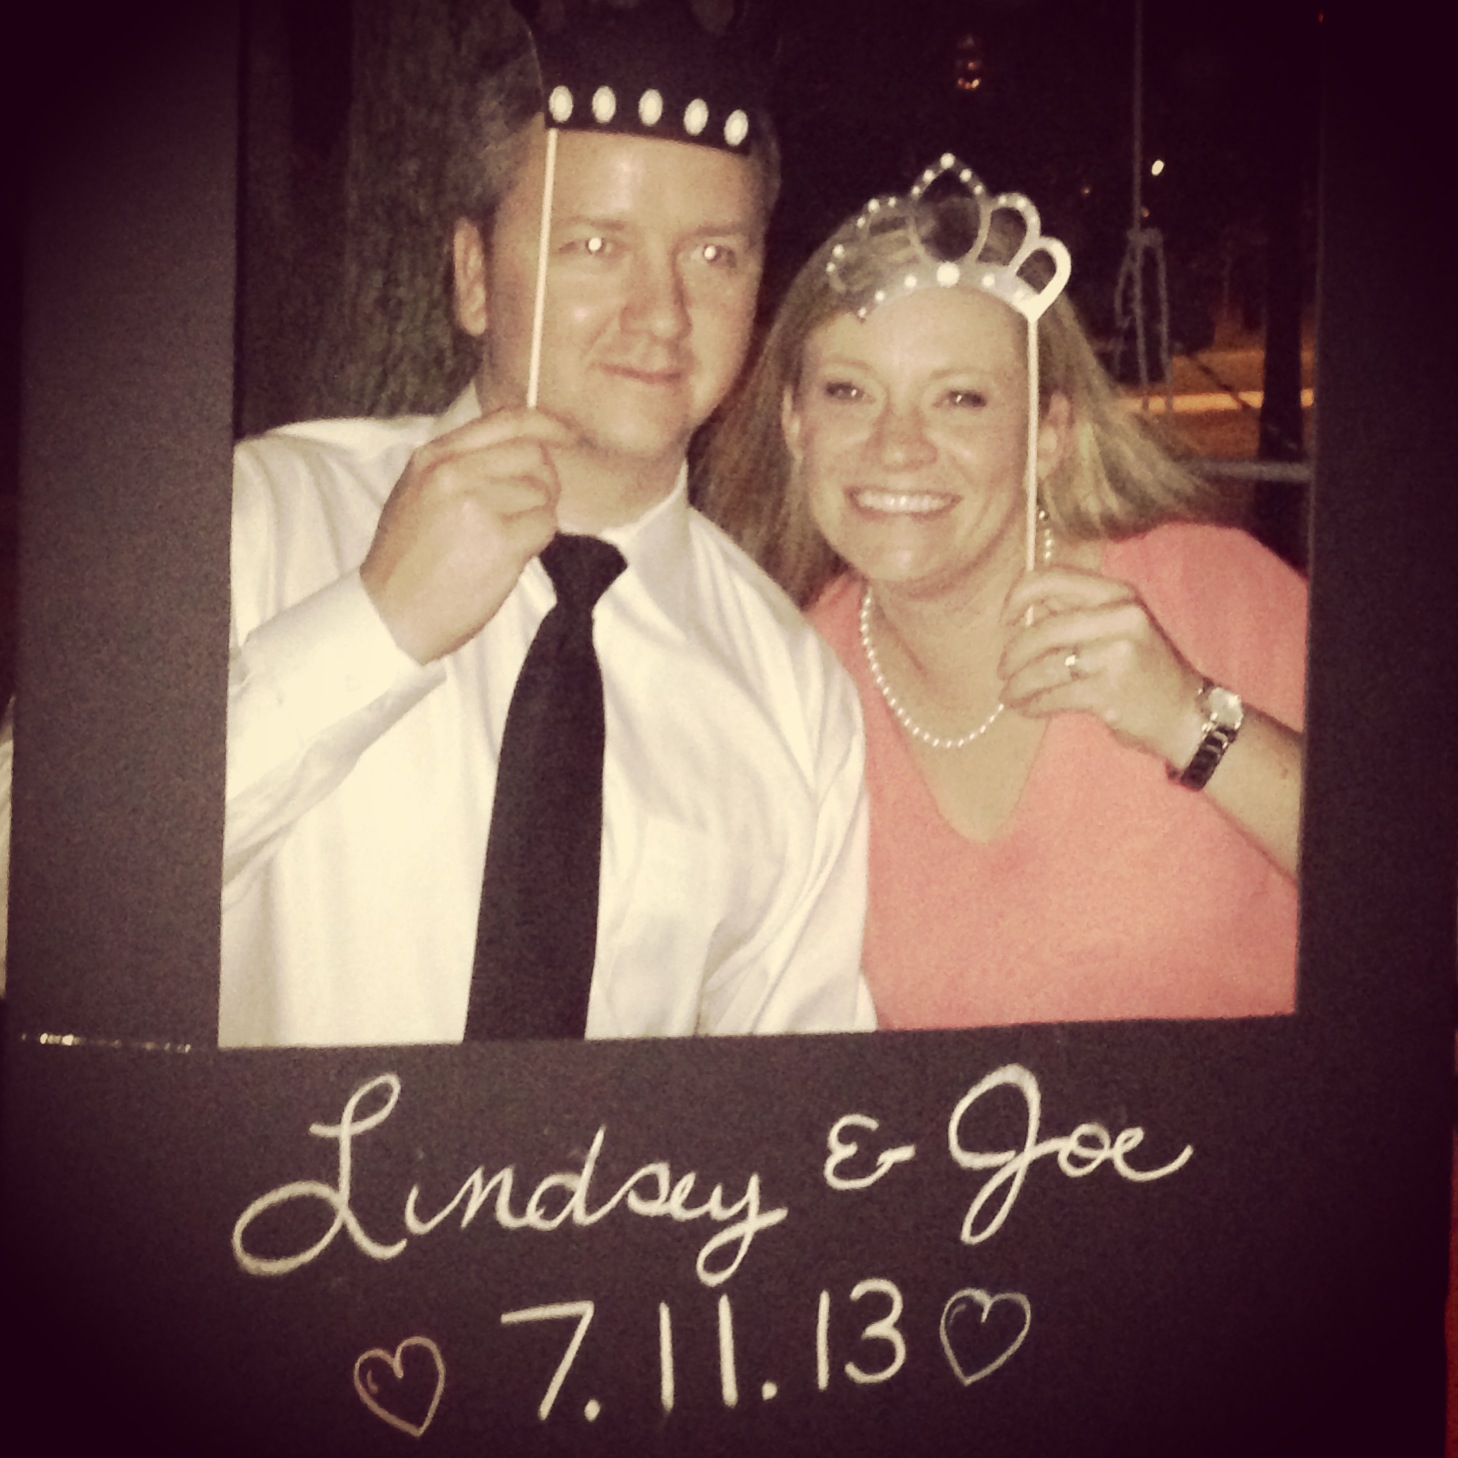 Lindsey & Joe
7.11.13